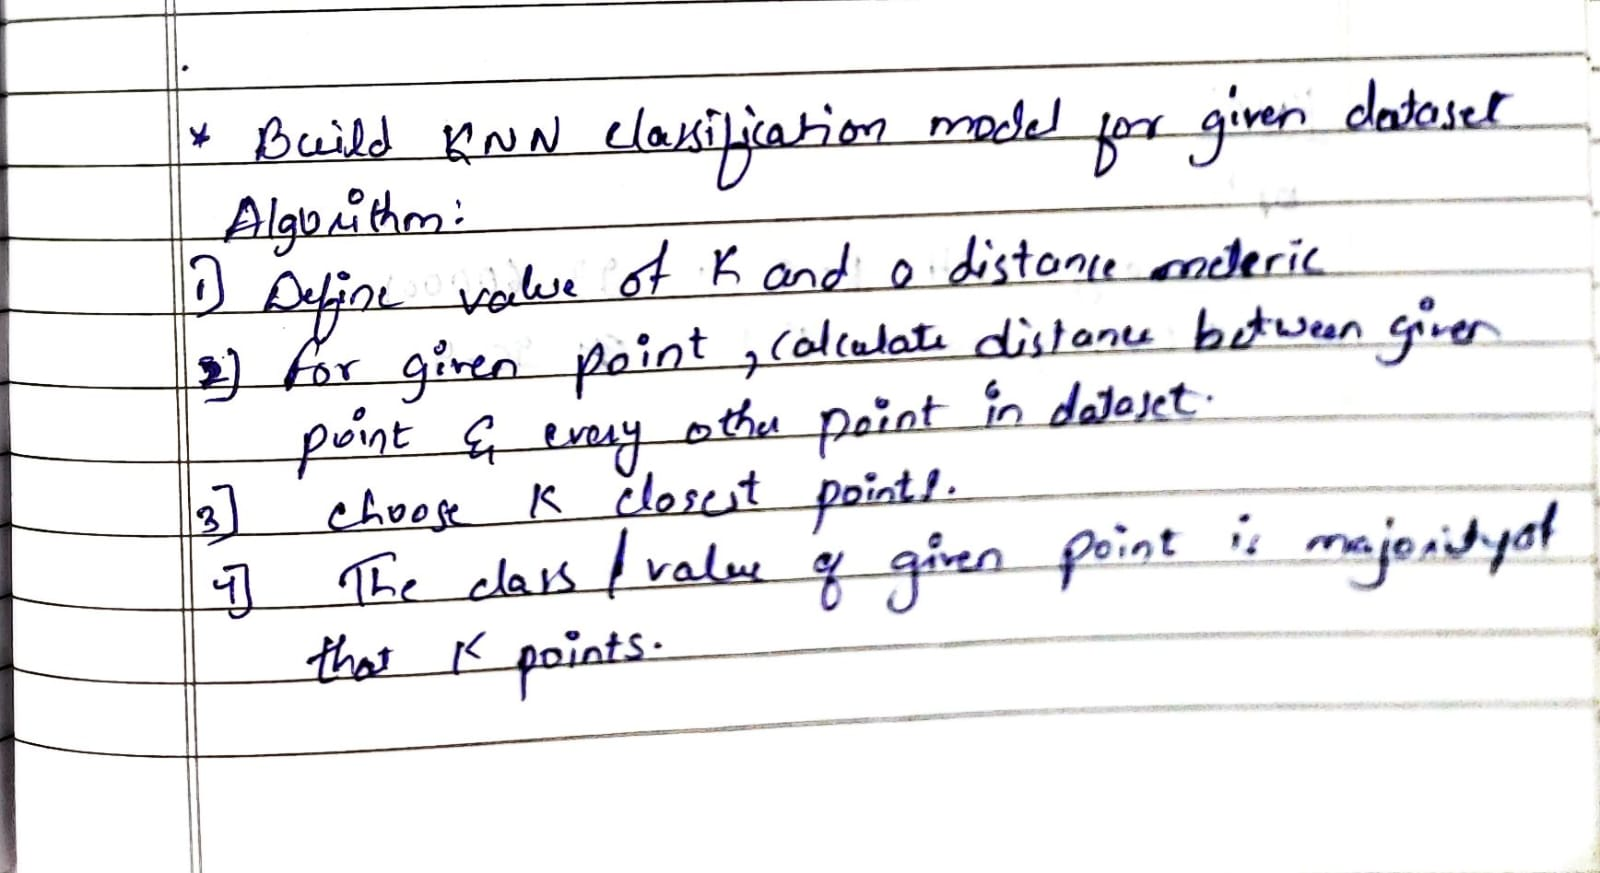 * Build KNN classification model for given dataset
Algorithm:
1] Define value of K and a distance meteric
2) for given point, calculate distance between given
point & every other point in dataset.
3] choose K closest points.
4] The class / value of given point is majority of
that K points.